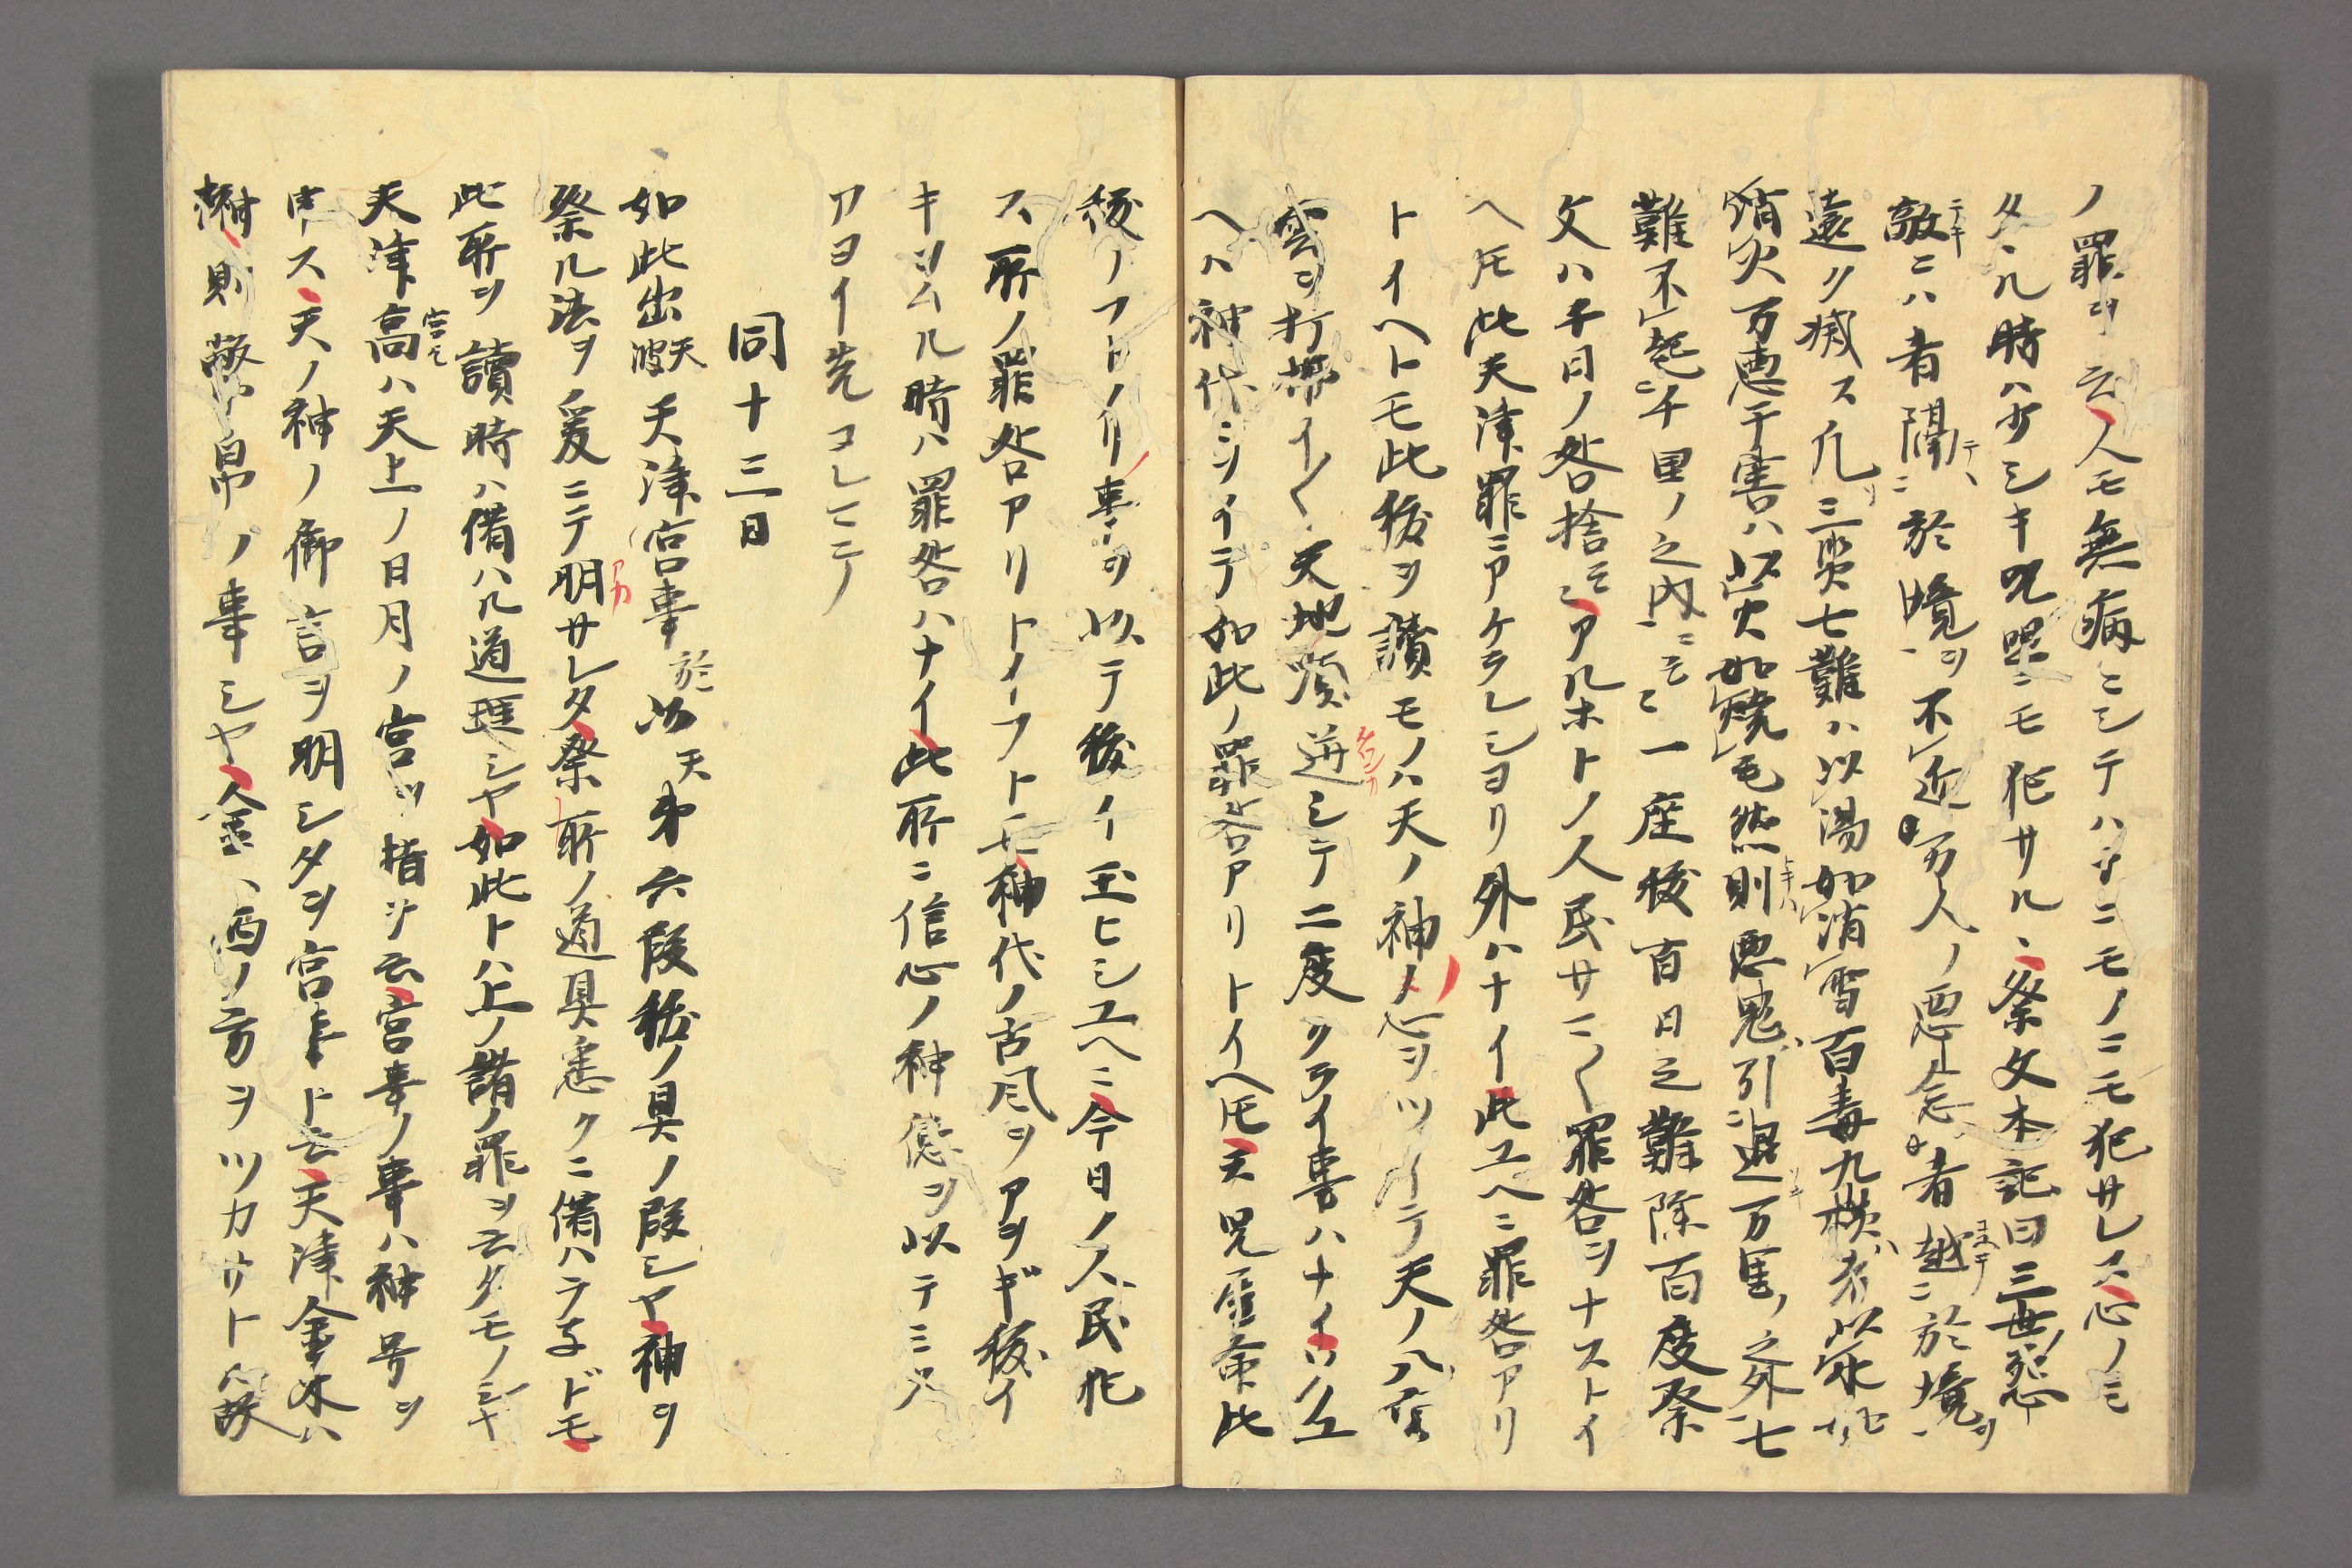 ノ罪ヲ云人モ無病ニシテハナニモノニモ犯サレス心ノミ
タヽル時ハ少シキ呪咀ニモ犯サル、祭文本記曰三世ノ怨
敵ニハ者隔ニ於境ヲ不近万人ノ悪念者越ニ於境ヲ
遠ク滅ス凡三災七難ハ以湯如消雪百毒九横者以
消火万悪千害ハ以火如焼毛然則悪鬼引退万里ノ之外七
難不起千里ノ之内ニモ一座祓百日之難除百度祭
文ハ千日ノ咎捨ニアルホトノ人民サマ〱罪咎ヲナストイ
ヘ𪜈此天津罪ニアケラレシヨリ外ハナイ此ユヘニ罪咎アリ
トイヘトモ此祓ヲ讀モノハ天ノ神ノ心ヲツイテ天ノ八重
雲ヲ打拂イ〱天地顕迸シテ二度クライ事ハナイ
ヘハ神代ヲイテ如此ノ罪咎アリトイヘ𪜈天児屋命此
祓ノフトノリ事ヲ以テ祓イ玉ヒシユヘニ今日ノ人民犯
ス所ノ罪咎アリトイフトモ神代ノ古風ヲアヲギ祓イ
キヨムル時ハ罪咎ハナイ此所ニ信心ノ神徳ヲ以テミソ
アヨイ先コレマテ
同十三日
如此出波天天津宮事於以天第六段祓ノ具ノ段シヤ神ヲ
祭ル法ヲ爰ニテ明サレタ祭所ノ道具悉クニ備ハラ子ドモ
此所ヲ讀時ハ備ハル道理シヤ如此トハ上ノ諸ノ罪ヲ云タモノシヤ
天津高ハ天上ノ日月ノ宮ヲ指ヲ云宮事ノ事ハ神号ヲ
申ス天ノ神ノ御言ヲ明シタヲ宮事ト云天津金木ハ
榊則幣帛ノ事シヤ金ハ酉ノ方ヲツカサトル故